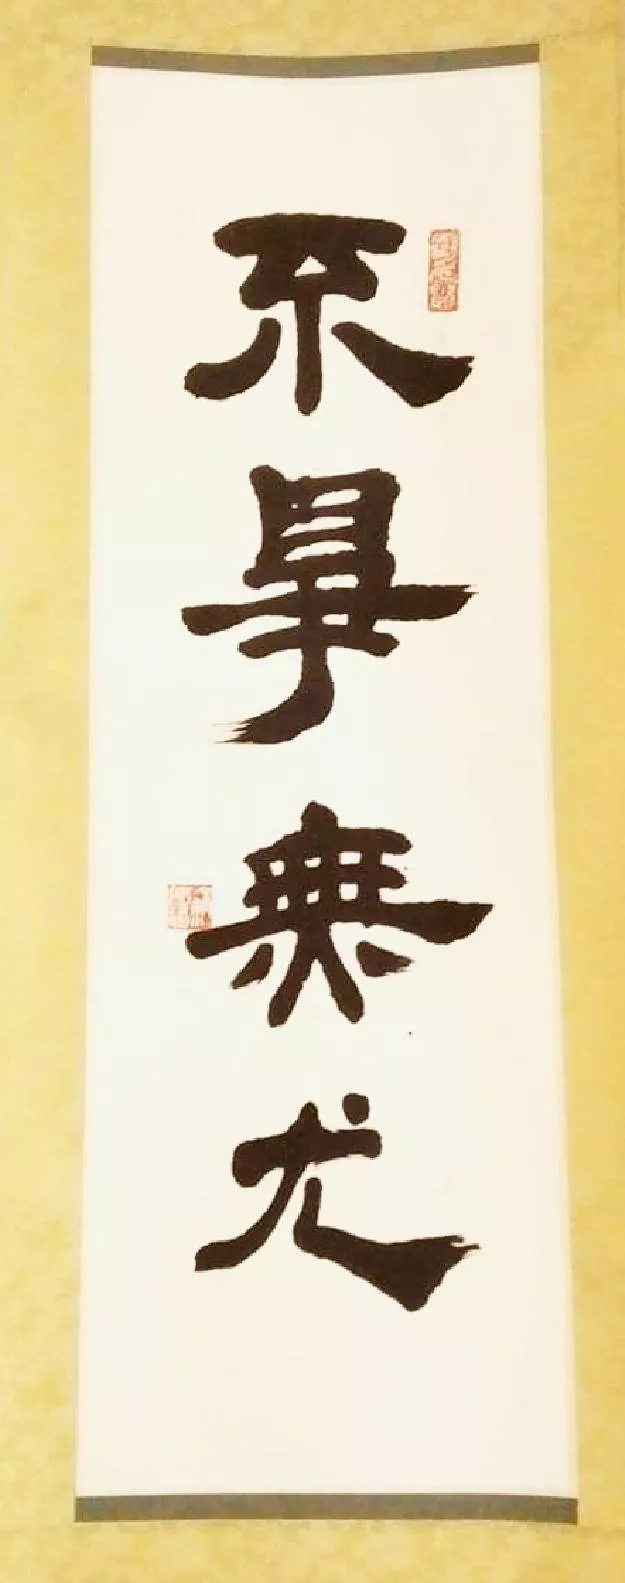 不爭無尤